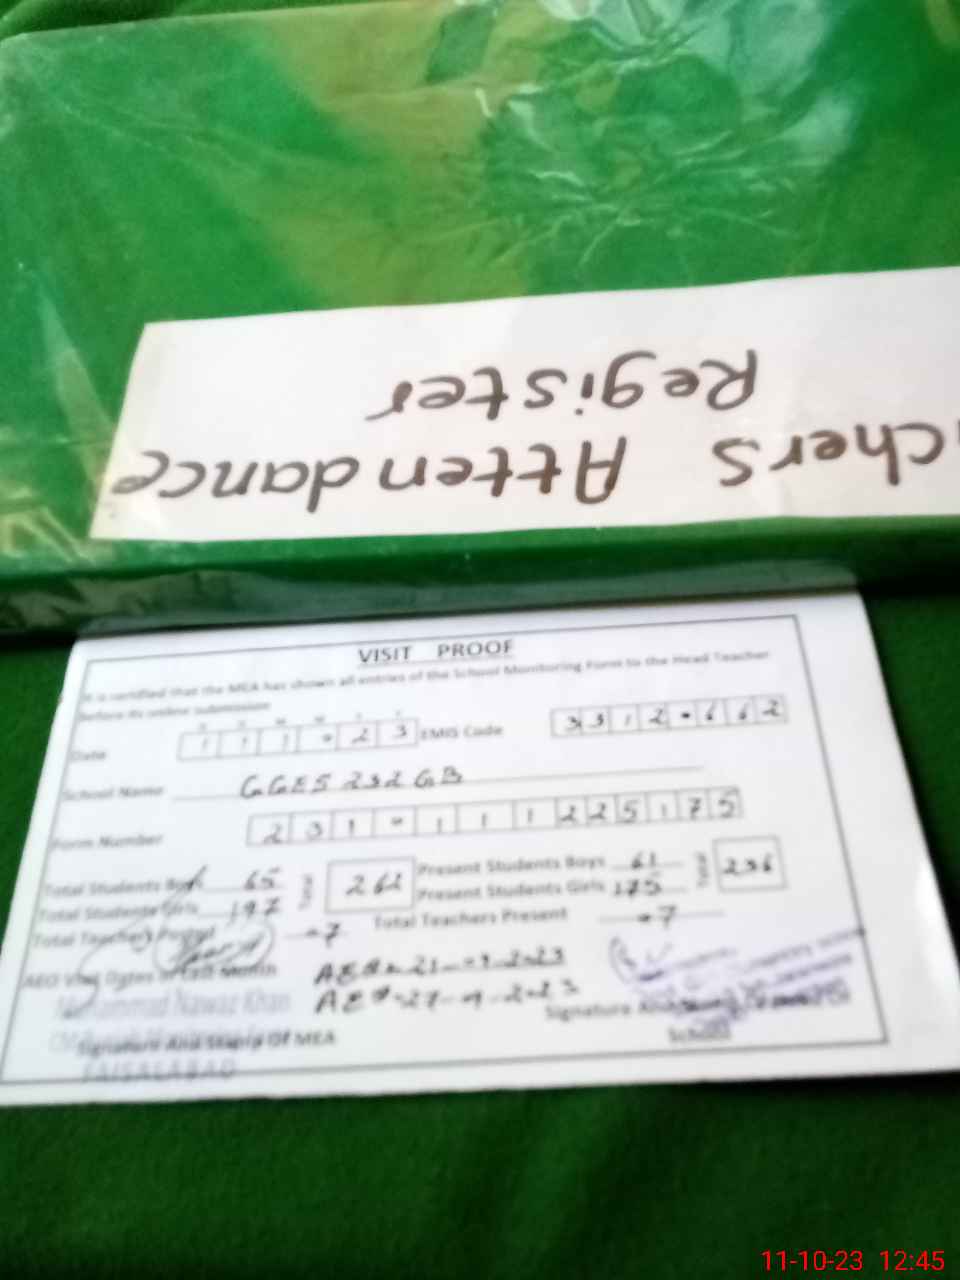 chers Attendance
Register
VISIT PROOF
It is certified that the MEA has shown all entries of the School Monitoring Form to the Head Teacher
before its online submission
Date 1 1 1 0 2 3 EMIS Code 3 3 1 2 0 6 6 2
School Name GGES 232 GB
Form Number 2 3 1 0 1 1 1 2 2 5 1 7 5
Total Students Boys 65 Total 262 Present Students Boys 61 Total 236
Total Students Girls 197 Present Students Girls 175
Total Teachers Posted 07 Total Teachers Present 07
AEO Visit Dates of Last Month
Muhammad Nawaz Khan
Signature And Stamp Of MEA
Signature And
School
FAISALABAD
11-10-23 12:45